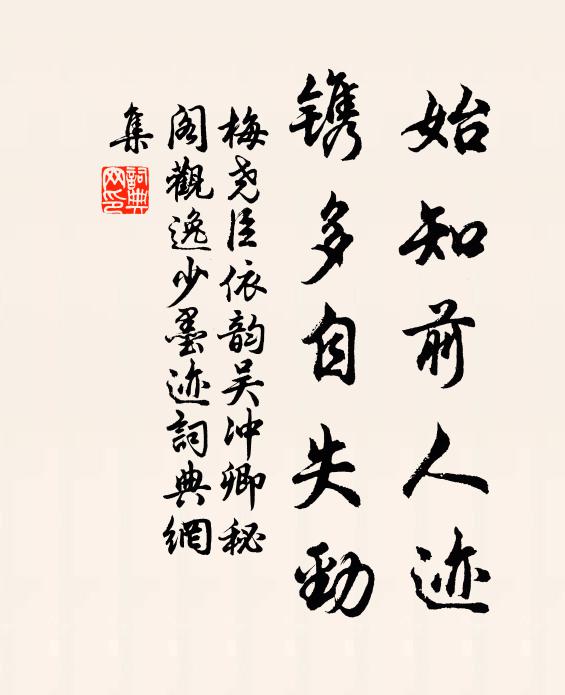 始知前人迹
镌多自失勁
梅尧臣依韵吴冲卿秘
阁觀逸少墨迹詞典網
集
詞典
网印